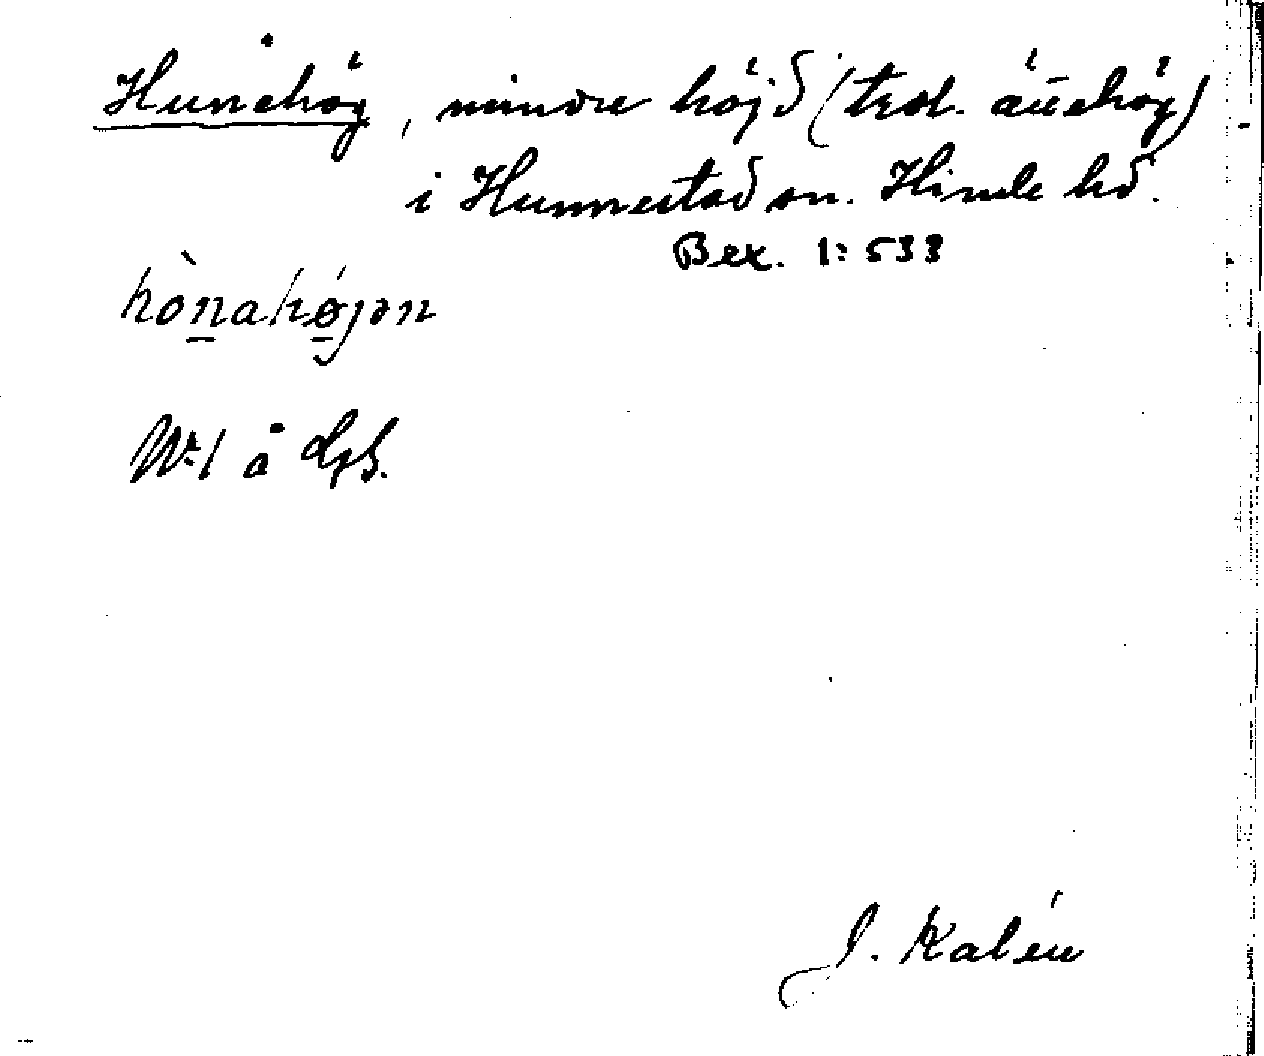 Hunehög, mindre höjd (trol. ättehög)
i Hunnestad sn. Himle hd.
Bex. 1: 533
hònahǿjən
Nr 1 å Lgh.
J. Kalén